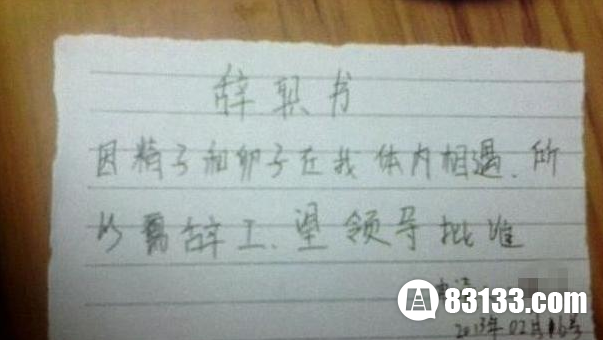 辞职书
因精子和卵子在我体内相遇.所
以需辞工.望领导批准
申请
83133.com
2013年02月16号